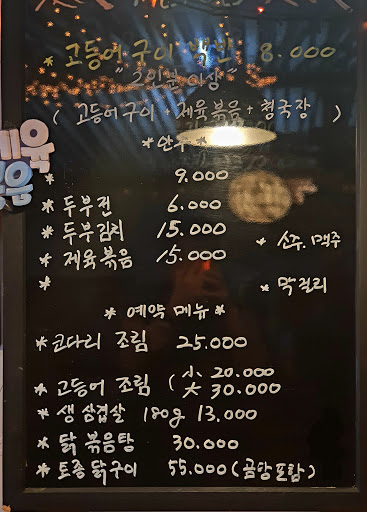 * 고등어 구이 백반 8.000
"2인분 이상"
( 고등어구이 + 제육볶음 + 청국장 )
* 안주 *
* 9.000
* 두부전 6.000
* 두부김치 15.000
* 소주. 맥주
* 제육볶음 15.000
*
* 막걸리
* 예약 메뉴 *
* 코다리 조림 25.000
* 고등어 조림 ( 小 20.000
大 30.000
* 생삼겹살 180g 13.000
* 닭볶음탕 30.000
* 토종닭구이 55.000 (곰탕포함)